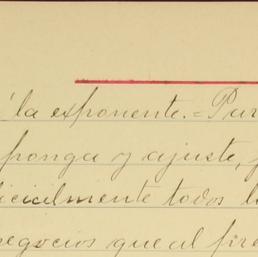 la exponente.=Par
ponga y ajuste,
icialmente todos l
negocios que al fire